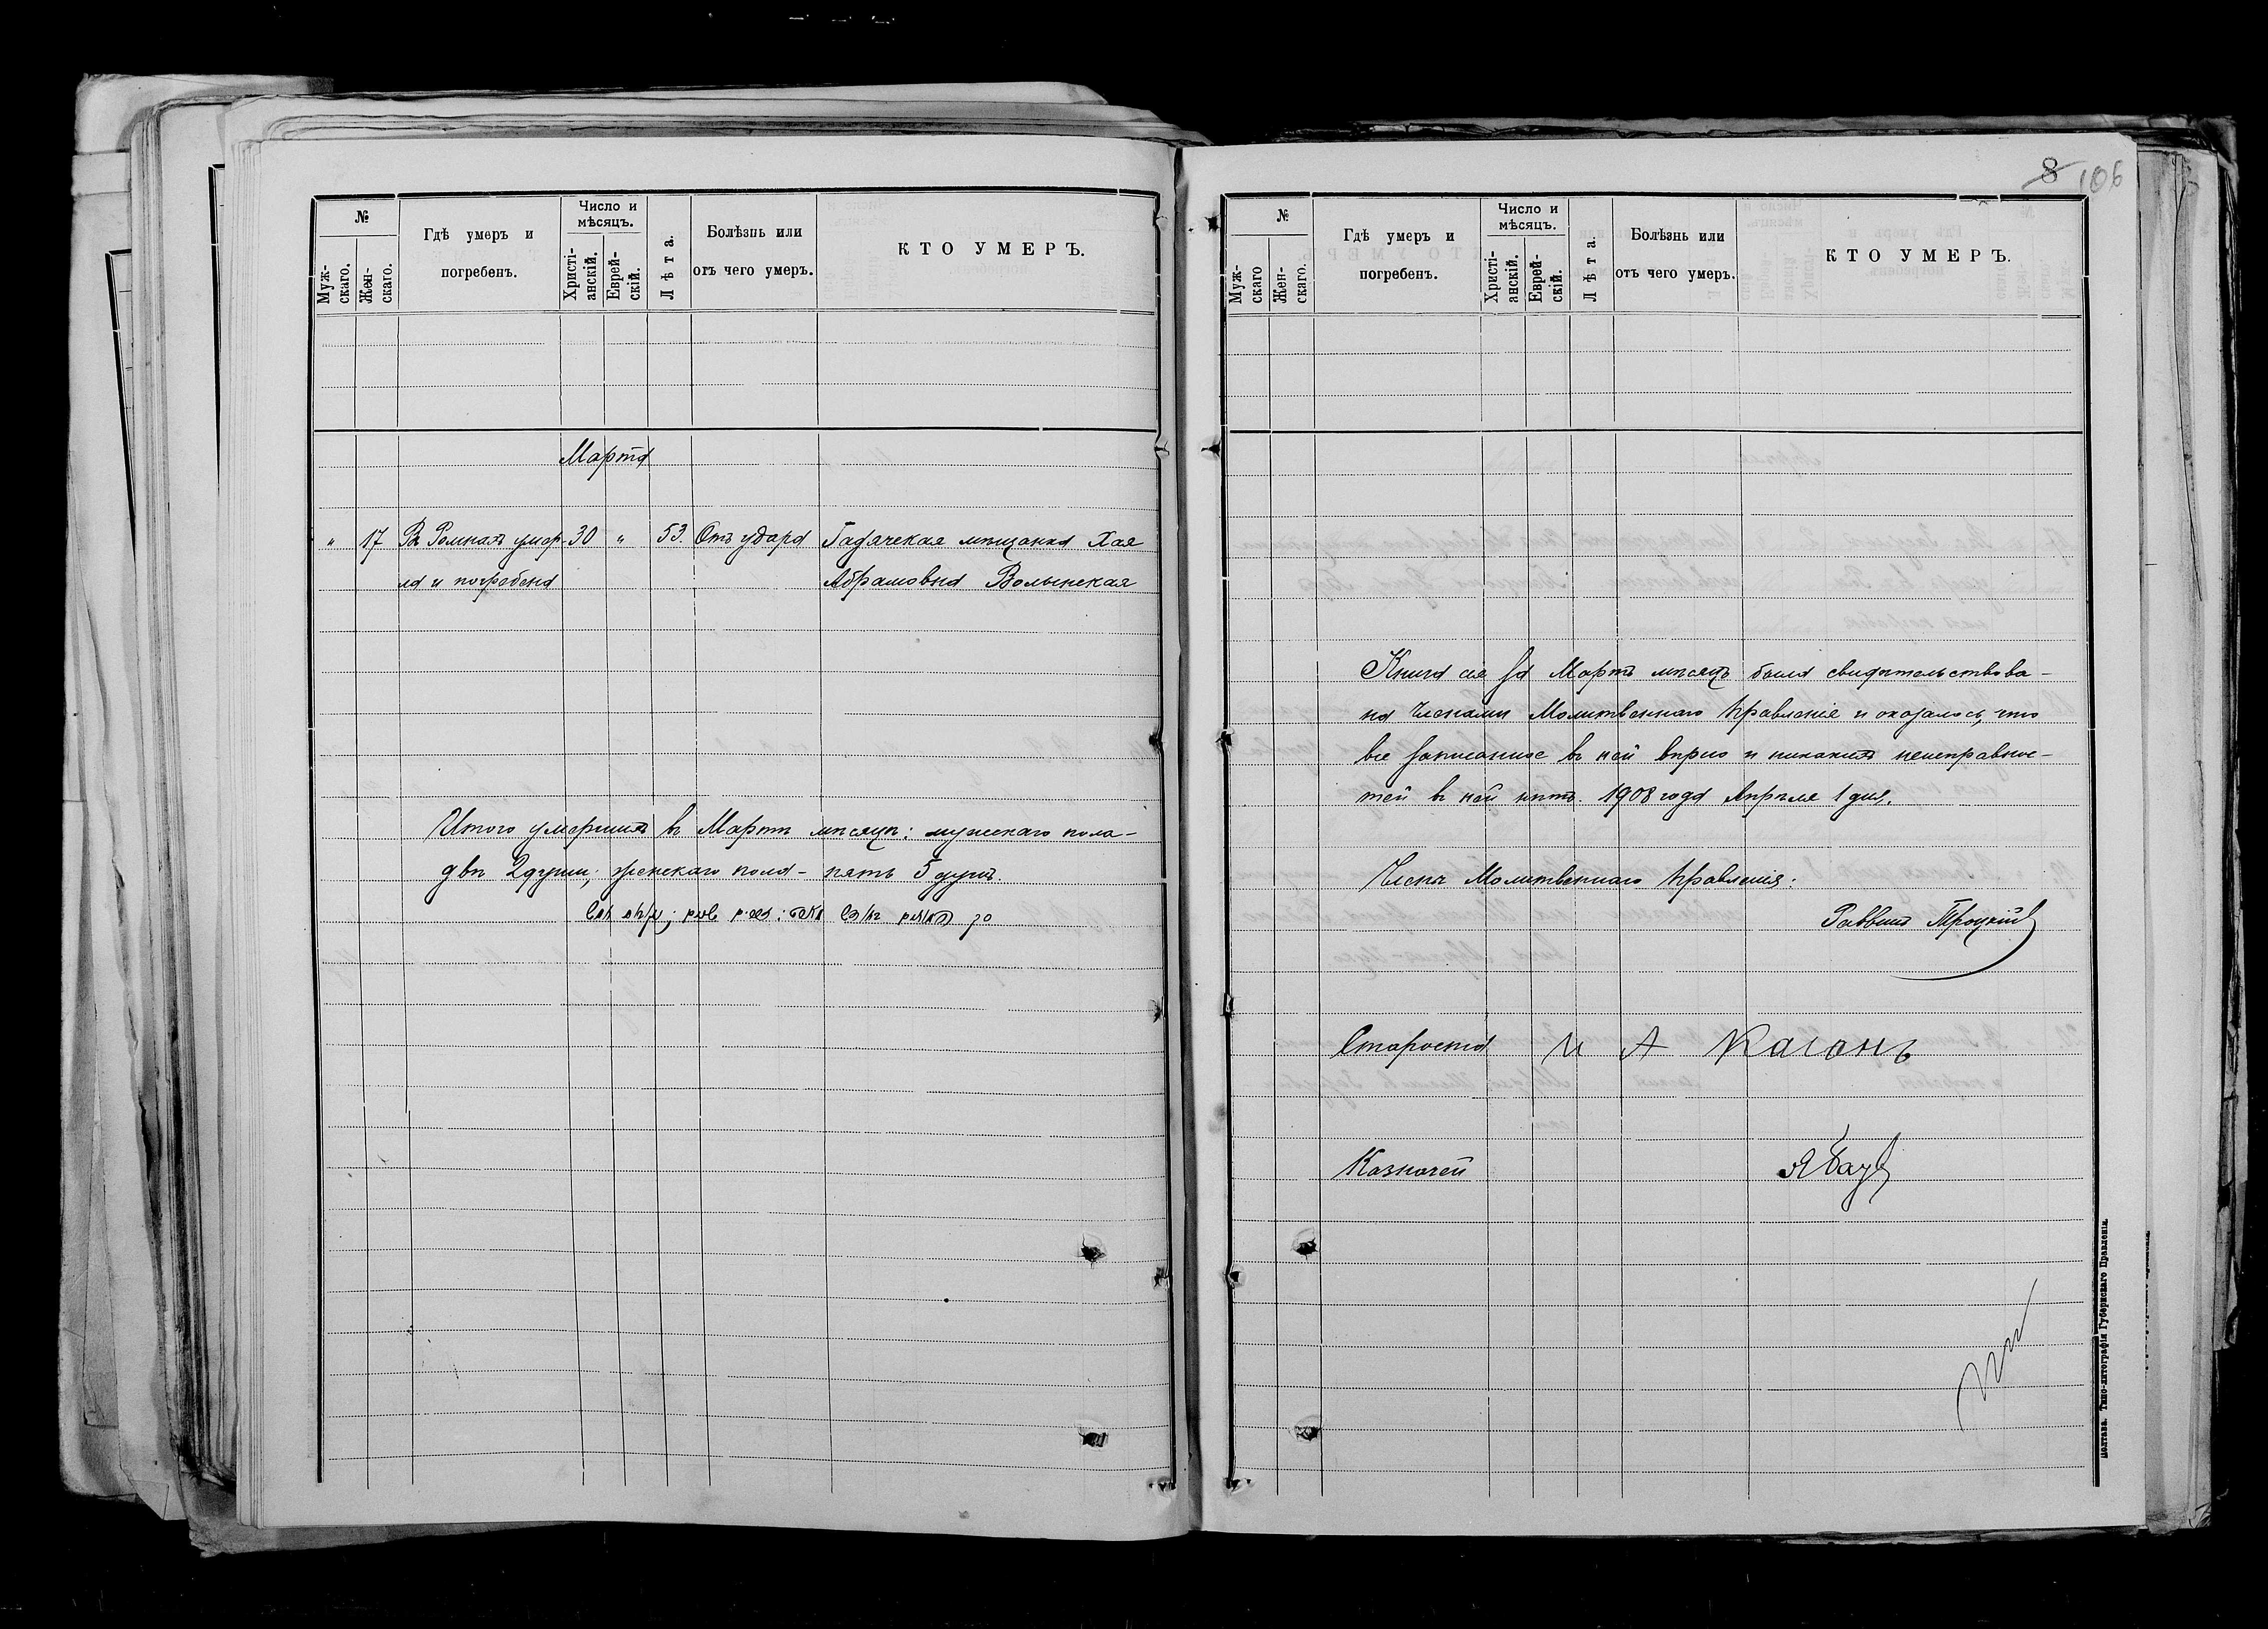 №
Муж-
скаго.
Жен-
скаго.
Гдѣ умеръ и
погребенъ.
Число и
мѣсяцъ.
Христі-
анскій.
Еврей-
скій.
Лѣта.
Болѣзнь или
отъ чего умеръ.
КТО УМЕРЪ.
Марта
" 17 Въ Ромнахъ умер- 30 " 53. Отъ удара Гадячская мѣщанка Хая
ла и погребена Абрамовна Волынская
Итого умершихъ въ Мартѣ мѣсяцѣ: мужскаго пола-
двѣ 2 души; женскаго пола- пять 5 душъ.
8 106
№
Муж-
скаго
Жен-
скаго.
Гдѣ умеръ и
погребенъ.
Число и
мѣсяцъ.
Христі-
анскій.
Еврей-
скій.
Лѣта.
Болѣзнь или
отъ чего умеръ.
КТО УМЕРЪ.
Книга сія за Мартъ мѣсяцъ была свидѣтельствова-
на Членами Молитвеннаго Правленія и оказалось, что
все записанное въ ней вѣрно и никакихъ неисправнос-
тей въ ней нѣтъ. 1908 года Апрѣля 1 дня.
Члены Молитвеннаго Правленія:
Раввинъ Троцкій
Староста И А Каганъ
Казначей
Полтава. Типо-литографія Губернскаго Правленія.